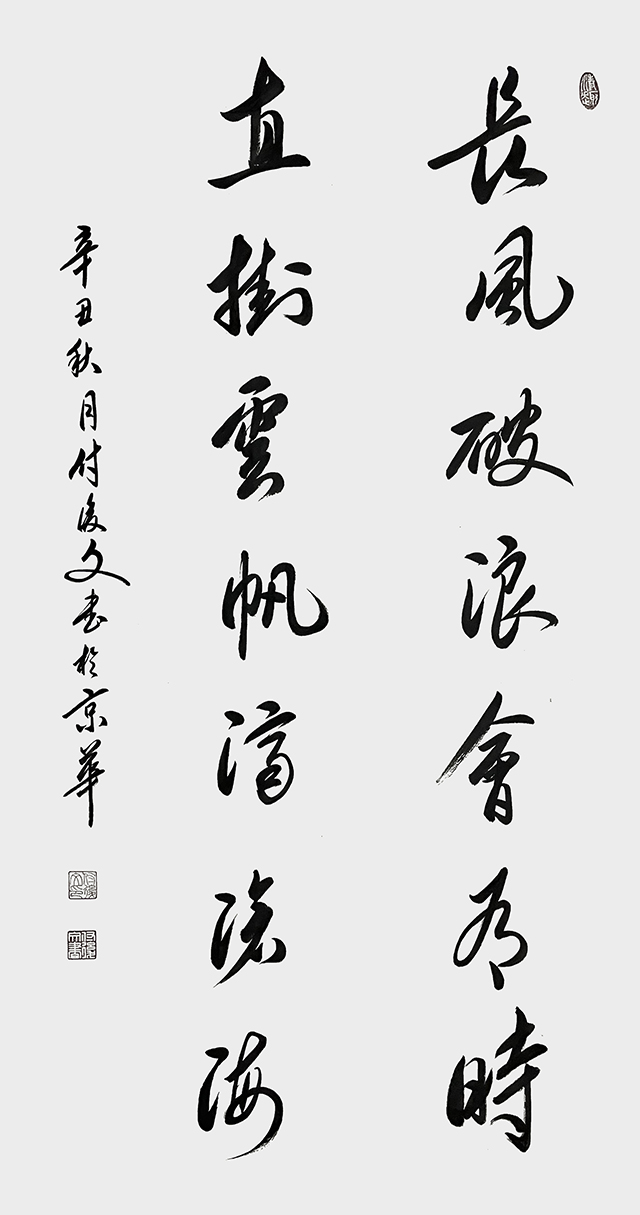 長風破浪會有時
直掛雲帆濟滄海
辛丑秋月付俊文書於京華